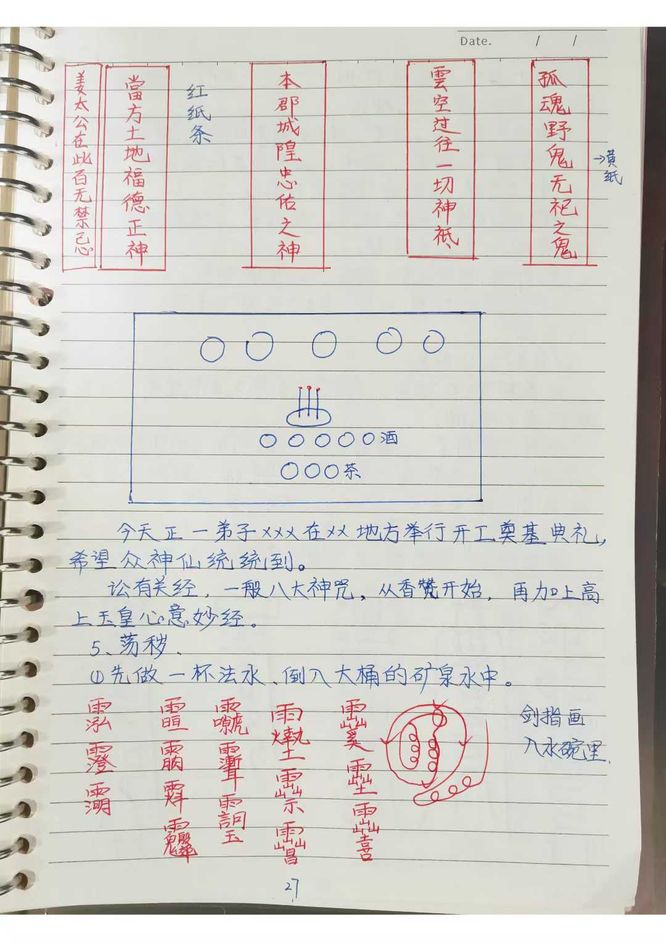 Date. / /
姜太公在此百无禁忌
當方土地福德正神
红纸条
本郡城隍忠佑之神
雲空过往一切神祇
孤魂野鬼无祀之鬼
→黄纸
酒
茶
今天正一弟子×××在××地方举行开工奠基典礼,
希望众神仙统统到。
讼有关经,一般八大神咒,从香赞开始,再加上高
上玉皇心意妙经。
5、荡秽.
①先做一杯法水、倒入大桶的矿泉水中。
剑指画
入水碗里.
27